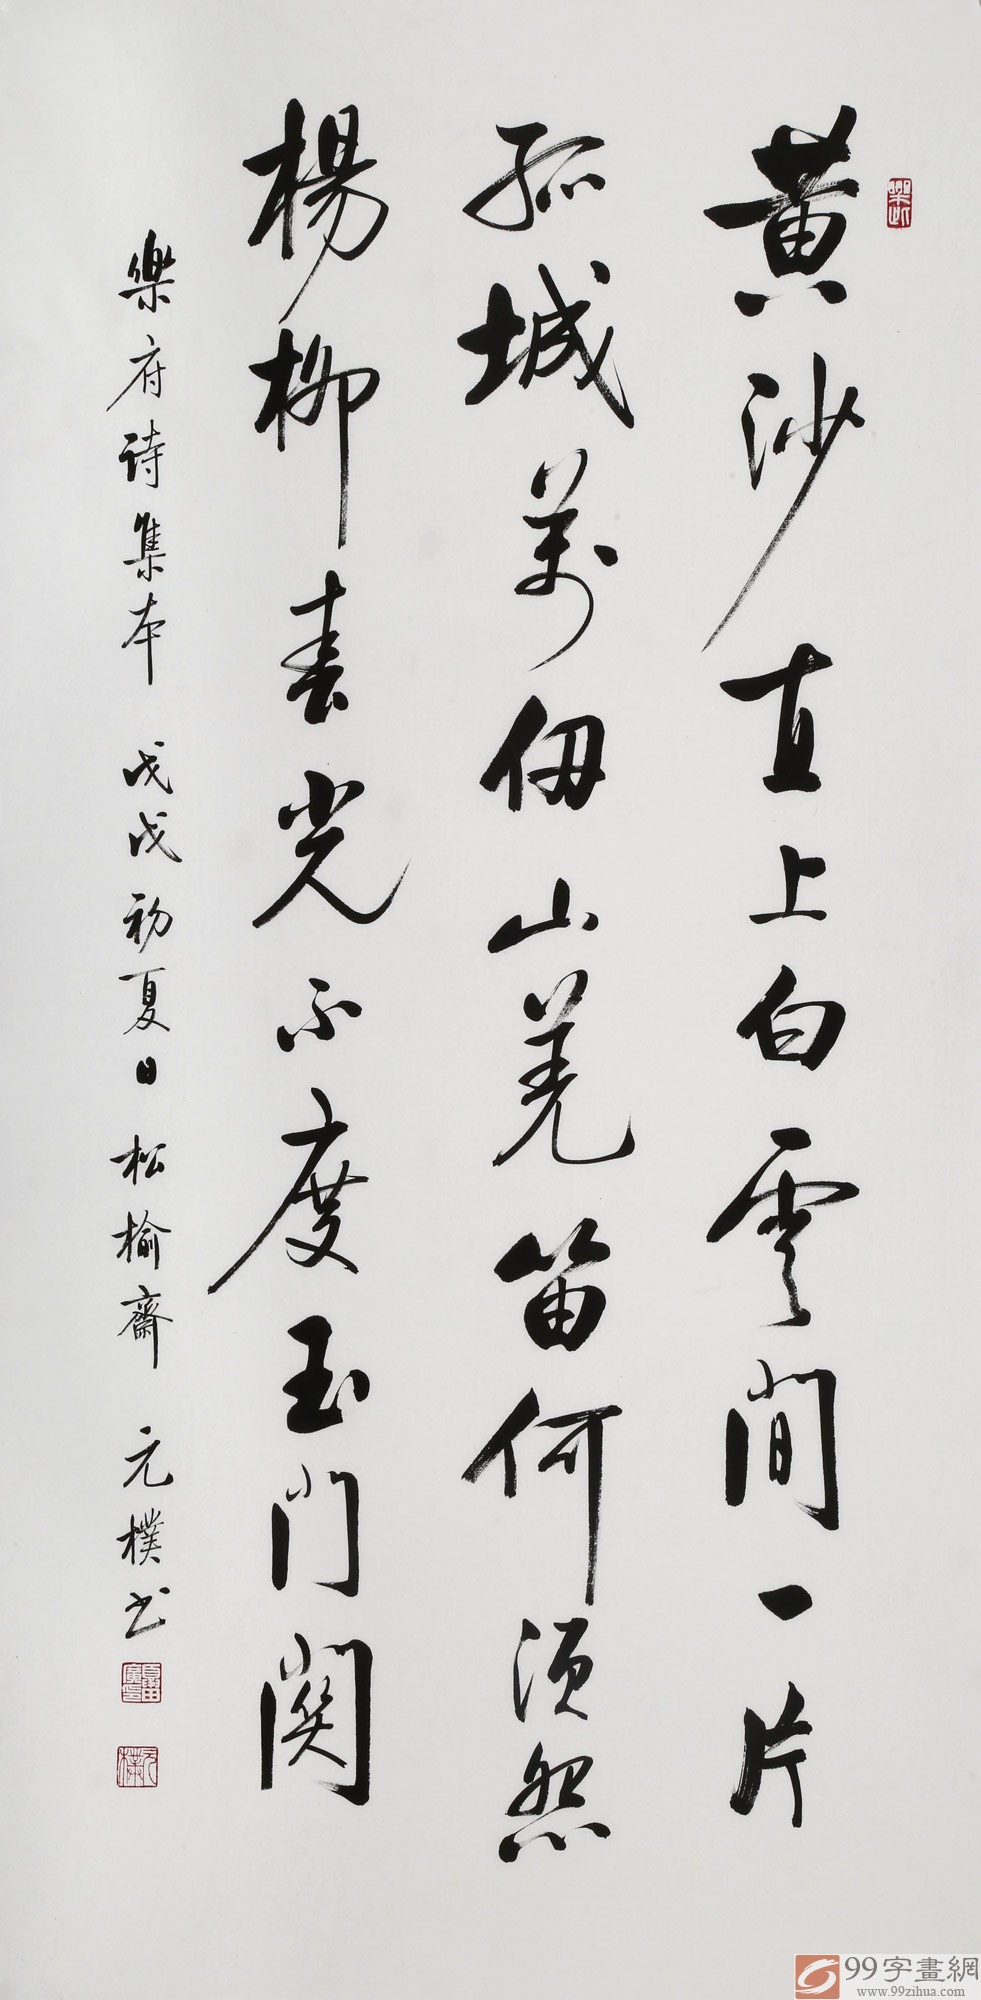 黄沙直上白雲间一片
孤城萬仞山羌笛何须怨
楊柳春光不度玉门関
樂府诗集本 戊戌初夏日 松榆齋 元樸书
99字畫網
www.99zihua.com